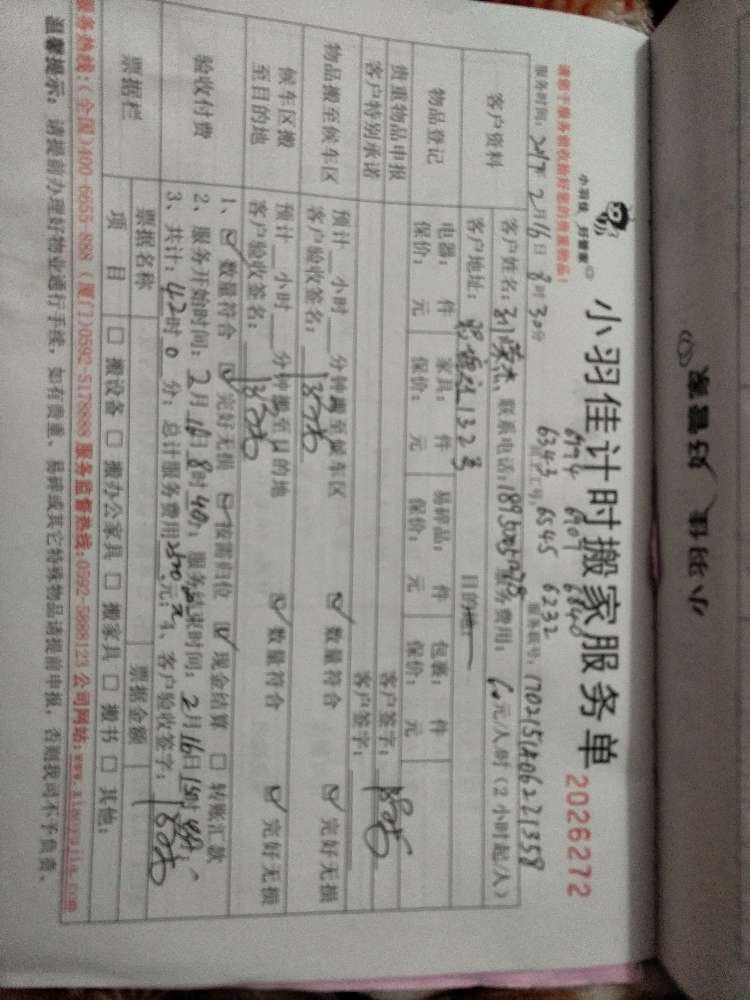 小羽佳 好管家
小羽佳 好管家
小羽佳计时搬家服务单 2026272
6974 6907 6840
6343 6545 6232
请您于服务前收拾好您的贵重物品!
服务时间: 2017年 2月 16日 8时 30分 员工工号: 服务联号:
客户资料
客户姓名: 联系电话: 服务费用: 60元/人/时 (2小时起/人)
客户地址: 132号 目的地:
物品登记
电器: 件 家具: 件 易碎品: 件 包裹: 件
保价: 元 保价: 元 保价: 元 保价: 元
贵重物品申报 客户签字:
客户特别承诺 客户签字:
物品搬至候车区
预计 小时 分钟搬至候车区 ☑ 数量符合 ☑ 完好无损
客户验收签名:
候车区搬至目的地
预计 小时 分钟搬至目的地 ☑ 数量符合 ☑ 完好无损
客户验收签名:
验收付费
1、☑ 数量符合 ☑ 完好无损 ☑ 按需归位 ☑ 现金结算 □ 转账汇款
2、服务开始时间: 2月 16日 8时 40分; 服务结束时间: 2月 16日 15时
3、共计: 42时 0 分; 总计服务费用2520元; 4、客户验收签字:
票据栏
票据名称 票据金额
项 目 □ 搬设备 □ 搬办公家具 □ 搬家具 □ 搬书 □ 其他:
服务热线:(全国)400-6655-888 (厦门)0592-5178888 服务监督热线:0592-5888123 公司网站:www.xiaoyujia.com
温馨提示: 请提前办理好物业通行手续, 如有贵重、易碎或其它特殊物品请提前申报, 否则我司不予负责。